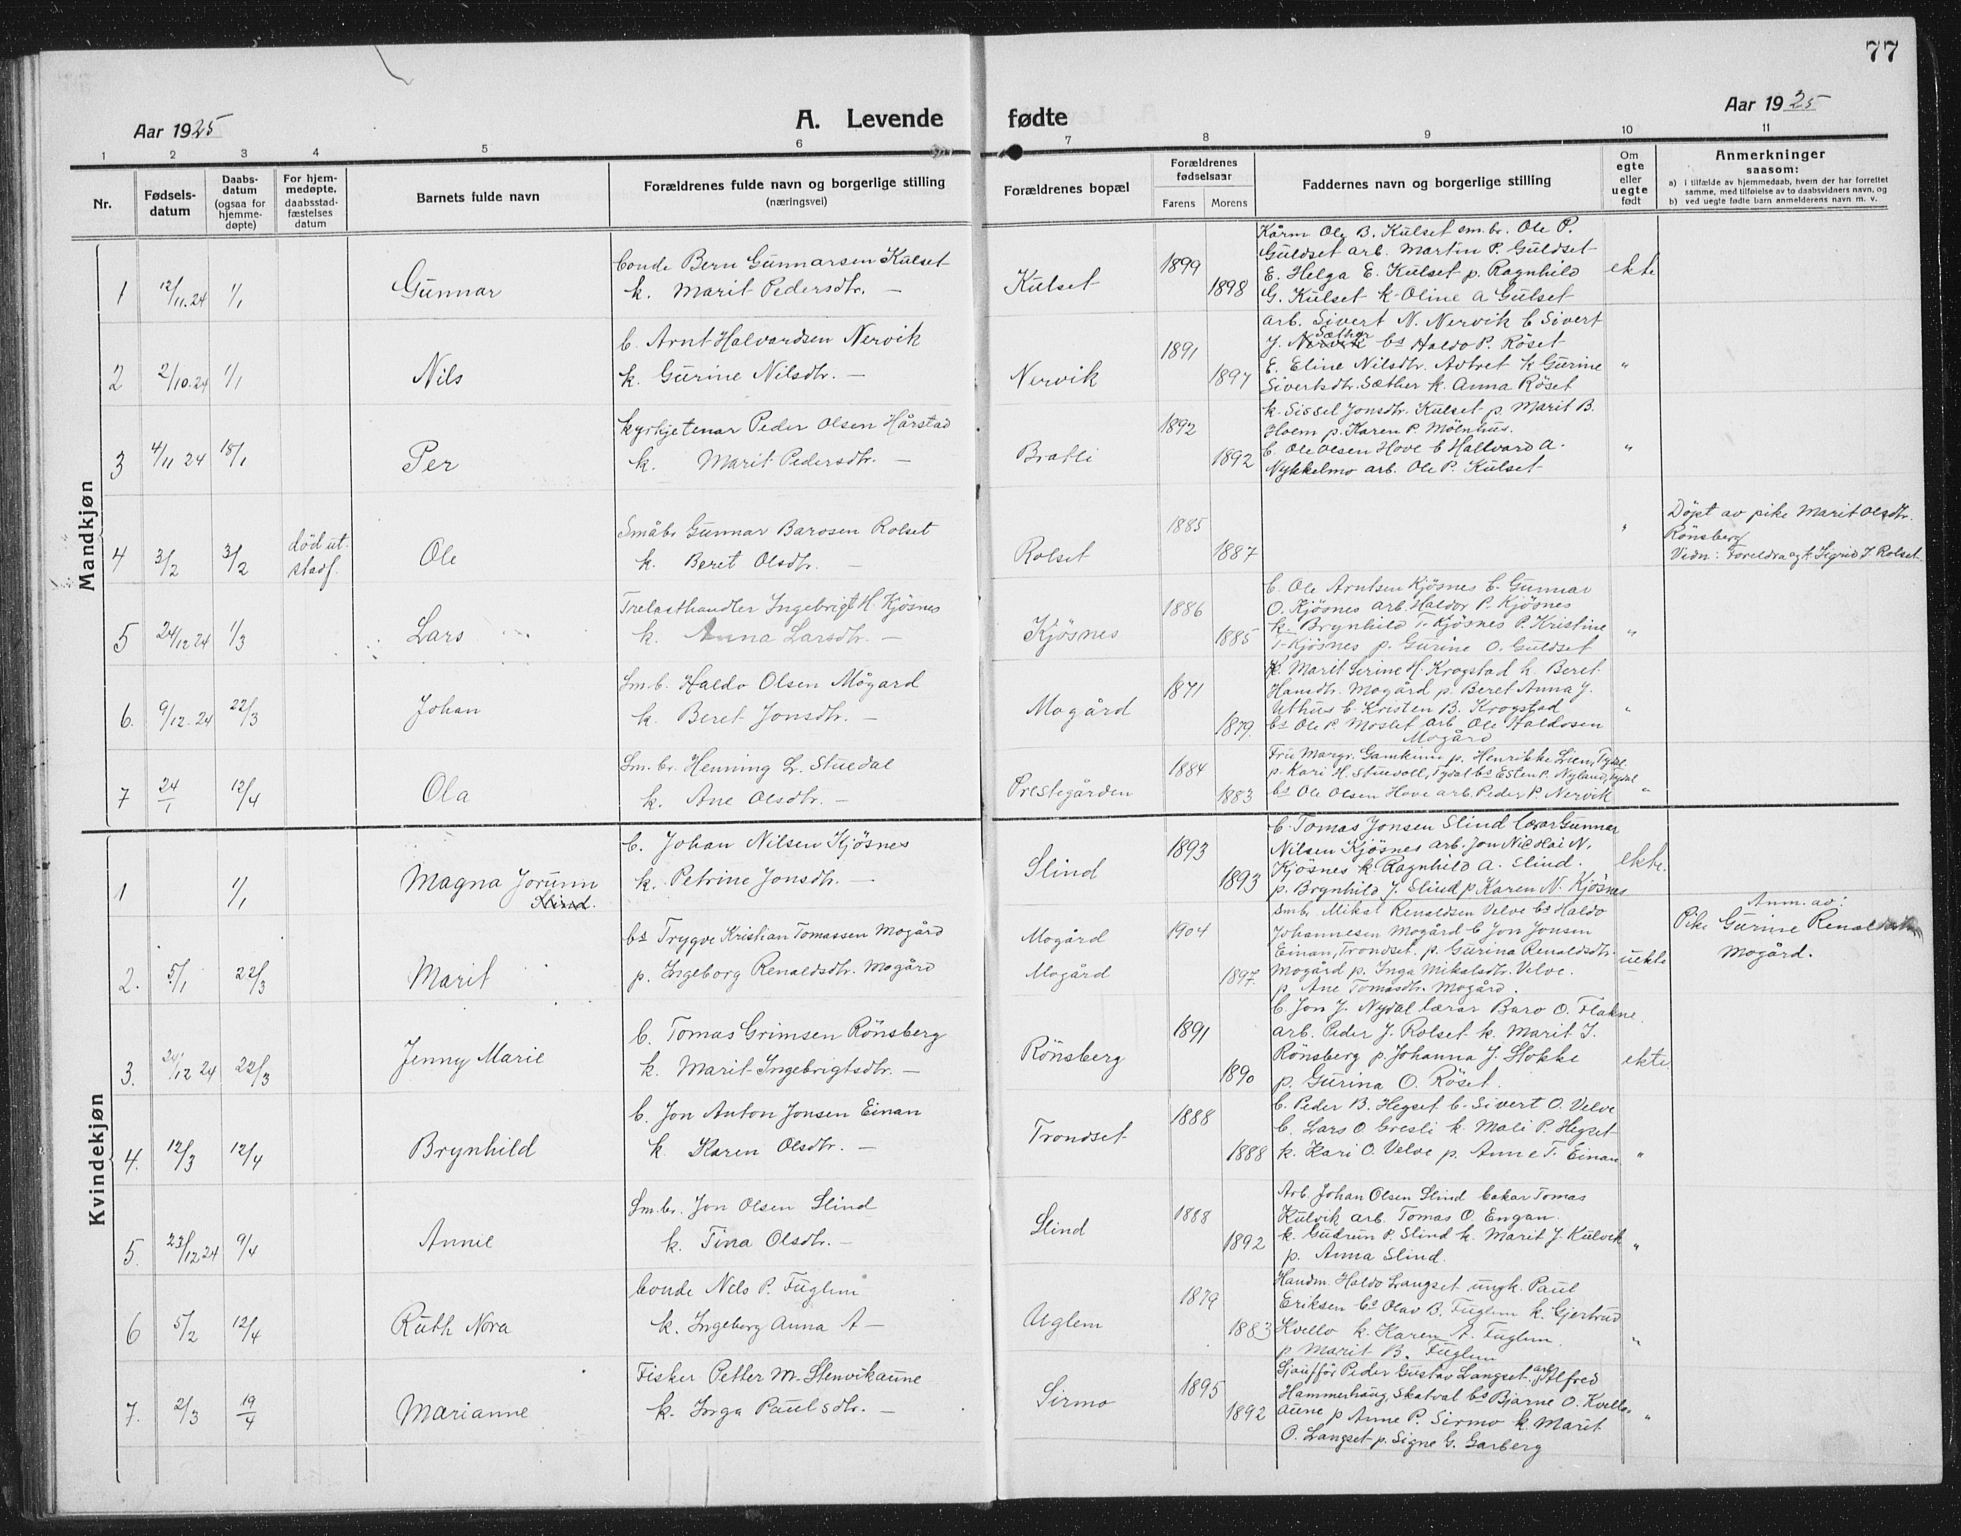 77
Aar 1925
A. Levende fødte
Aar 1925
1 2 3 4 5 6 7 8 9 10 11
Nr.
Fødsels-
datum
Daabs-
datum
(ogsaa for
hjemme-
døpte)
For hjem-
medøpte,
daabsstad-
fæstelses
datum
Barnets fulde navn
Forældrenes fulde navn og borgerlige stilling
(næringsvei)
Forældrenes bopæl
Forældrenes
fødselsaar
Farens Morens
Faddernes navn og borgerlige stilling
Om
egte
eller
uegte
født
Anmerkninger
saasom:
a) i tilfælde av hjemmedaab, hvem der har forrettet
samme, med tilføielse av to daabsvidners navn, og
b) ved uegte fødte barn anmelderens navn m. v.
Mandkjøn
1 12/11.24 1/1 Gunnar
bonde Bern Gunnarsen Kulset
k. Marit Pedersdtr. —
Kulset 1899 1898
Kårm Ole B. Kulset sm.br. Ole P.
Guldset arb. Martin P. Guldset
E. Helga E. Kulset p. Ragnhild
G. Kulset k. Oline A Gulset
ekte
2 2/10.24 1/1 Nils
b. Arnt Halvardsen Nervik
k. Gurine Nilsdtr. —
Nervik 1891 1897
arb. Sivert N. Nervik b Sivert
J. Nervik Sæther bs Haldo P. Röset
E. Eline Nilsdtr. Avtret k Gurine
Sivertsdtr. Sæther k. Anna Röset
"
3 4/11 24 18/1 Per
kyrkjetenar Peder Olsen Hårstad
k. Marit Pedersdtr. —
Bratli 1892 1892
k. Sissel Jonsdtr. Kulset p. Marit B.
Hoem p. Karen P. Mölnhus.
b. Ole Olsen Hove b Hallvard A.
Nykkelmo arb. Ole P. Kulset
"
4 3/2 3/2 död ut-
stadf. Ole
Småbr Gunnar Barosen Rolset
k. Beret Olsdtr. —
Rolset 1885 1887
"
Döpt av pike Marit Olsdtr.
Rönsberg
Vidn: Foreldra og k. Sigrid J. Rolset
5 24/12 24 1/3 Lars
Trelasthandler Ingebrigt H. Kjösnes
k. Anna Larsdtr. —
Kjösnes 1886 1885
b. Ole Arntsen Kjösnes b. Gunnar
O. Kjösnes arb. Haldor P. Kjösnes
k. Brynhild T. Kjösnes P. Kristine
T. Kjösnes p. Gurine O. Guldset
"
6. 9/12.24 22/3 Johan
Sm.b. Haldo Olsen Mogard
k. Beret Jonsdtr. —
Mogård 1871 1879.
k. Marit Serine H. Krogstad k Beret
Hansdtr. Mogård p. Beret Anna J.
Uthus b. Kristen B. Krogstad
bs Ole P. Moslet arb. Ole Haldosen
Mogård
"
7 24/1 12/4 Ola
Sm. br. Henning L. Stuedal
k. Ane Olsdtr. —
Prestegården 1884 1883
Fru Margr. Gamkinn p. Henrikke Lien, Tydal
p. Kari H. Stuevoll, Tydal bs Esten P. Nyland, Tydal
bs Ole Olsen Hove arb. Peder P. Nervik
"
Kvindekjøn
1 1/1 Magna Jorunn
Slind.
b. Johan Nilsen Kjösnes
k. Petrine Jonsdtr. —
Slind 1893 1893
b. Tomas Jonsen Slind lærar Gunnar
Nilsen Kjösnes arb. Jon Nicolai N.
Kjösnes k. Ragnhild A. Slind.
p. Brynhild J. Slind p Karen N. Kjösnes
ekte.
2. 5/1 22/3 Marit
bs Trygve Kristian Tomassen Mogård
p. Ingeborg Renaldsdtr. Mogård
Mogård
Mogård 1904 1897.
Smbr. Mikal Renaldsen Velve bs Haldo
Johannesen Mogård b Jon Jonsen
Einan, Trondset. p. Gurina Renaldsdtr.
Mogård p. Inga Mikalsdtr. Velve.
p. Ane Tomasdtr. Mogård.
uekte
Anm. av:
Pike Gurine Renaldsdtr
Mogård.
3. 24/12 24 22/3 Jenny Marie
b. Tomas Grimsen Rönsberg
k. Marit Ingebrigtsdtr. —
Rönsberg 1891 1890
b. Jon J. Nydal lærar Baro O. Flakne
arb. Peder J. Rolset k. Marit I.
Rönsberg p. Johanna J. Stokke
p. Gurina O. Röset.
ekte.
4. 12/3 12/4 Brynhild
b. Jon Anton Jonsen Einan
k. Karen Olsdtr. —
Trondset 1888 1888
b. Peder B. Hegset b. Sivert O. Velve
b. Lars O. Gresli k. Mali P. Hegset
k. Kari O. Velve p. Anne T. Einan
"
5. 23/12 24 9/4 Annie
Sm.br. Jon Olsen Slind
k. Tina Olsdtr. —
Slind 1888 1892
Arb. Johan Olsen Slind bakar Tomas
Kulvik arb. Tomas O. Engan.
k. Gudrun P. Slind k. Marit J. Kulvik
p. Anna Slind.
"
6 5/2 12/4 Ruth Nora
bonde Nils P. Fuglem
k. Ingeborg Anna A —
Uglem 1879 1883
Handm. Haldo Langset ungk. Paul
Eriksen bs Olav B. Fuglem k. Gjertrud
Kvello k. Karen A. Fuglem.
p Marit B. Fuglem
"
7. 2/3 19/4 Marianne
Fisker Petter M. Stenvikaune
k. Inga Paulsdtr. —
Sirmo 1895 1892
Sjaufför Peder Gustav Langset. arb. Alfred
Hammerhaug, Skatval bs Bjarne O. Kvello-
aune p Anne P. Sirmo k. Marit
O. Langset p. Signe G. Garberg
"